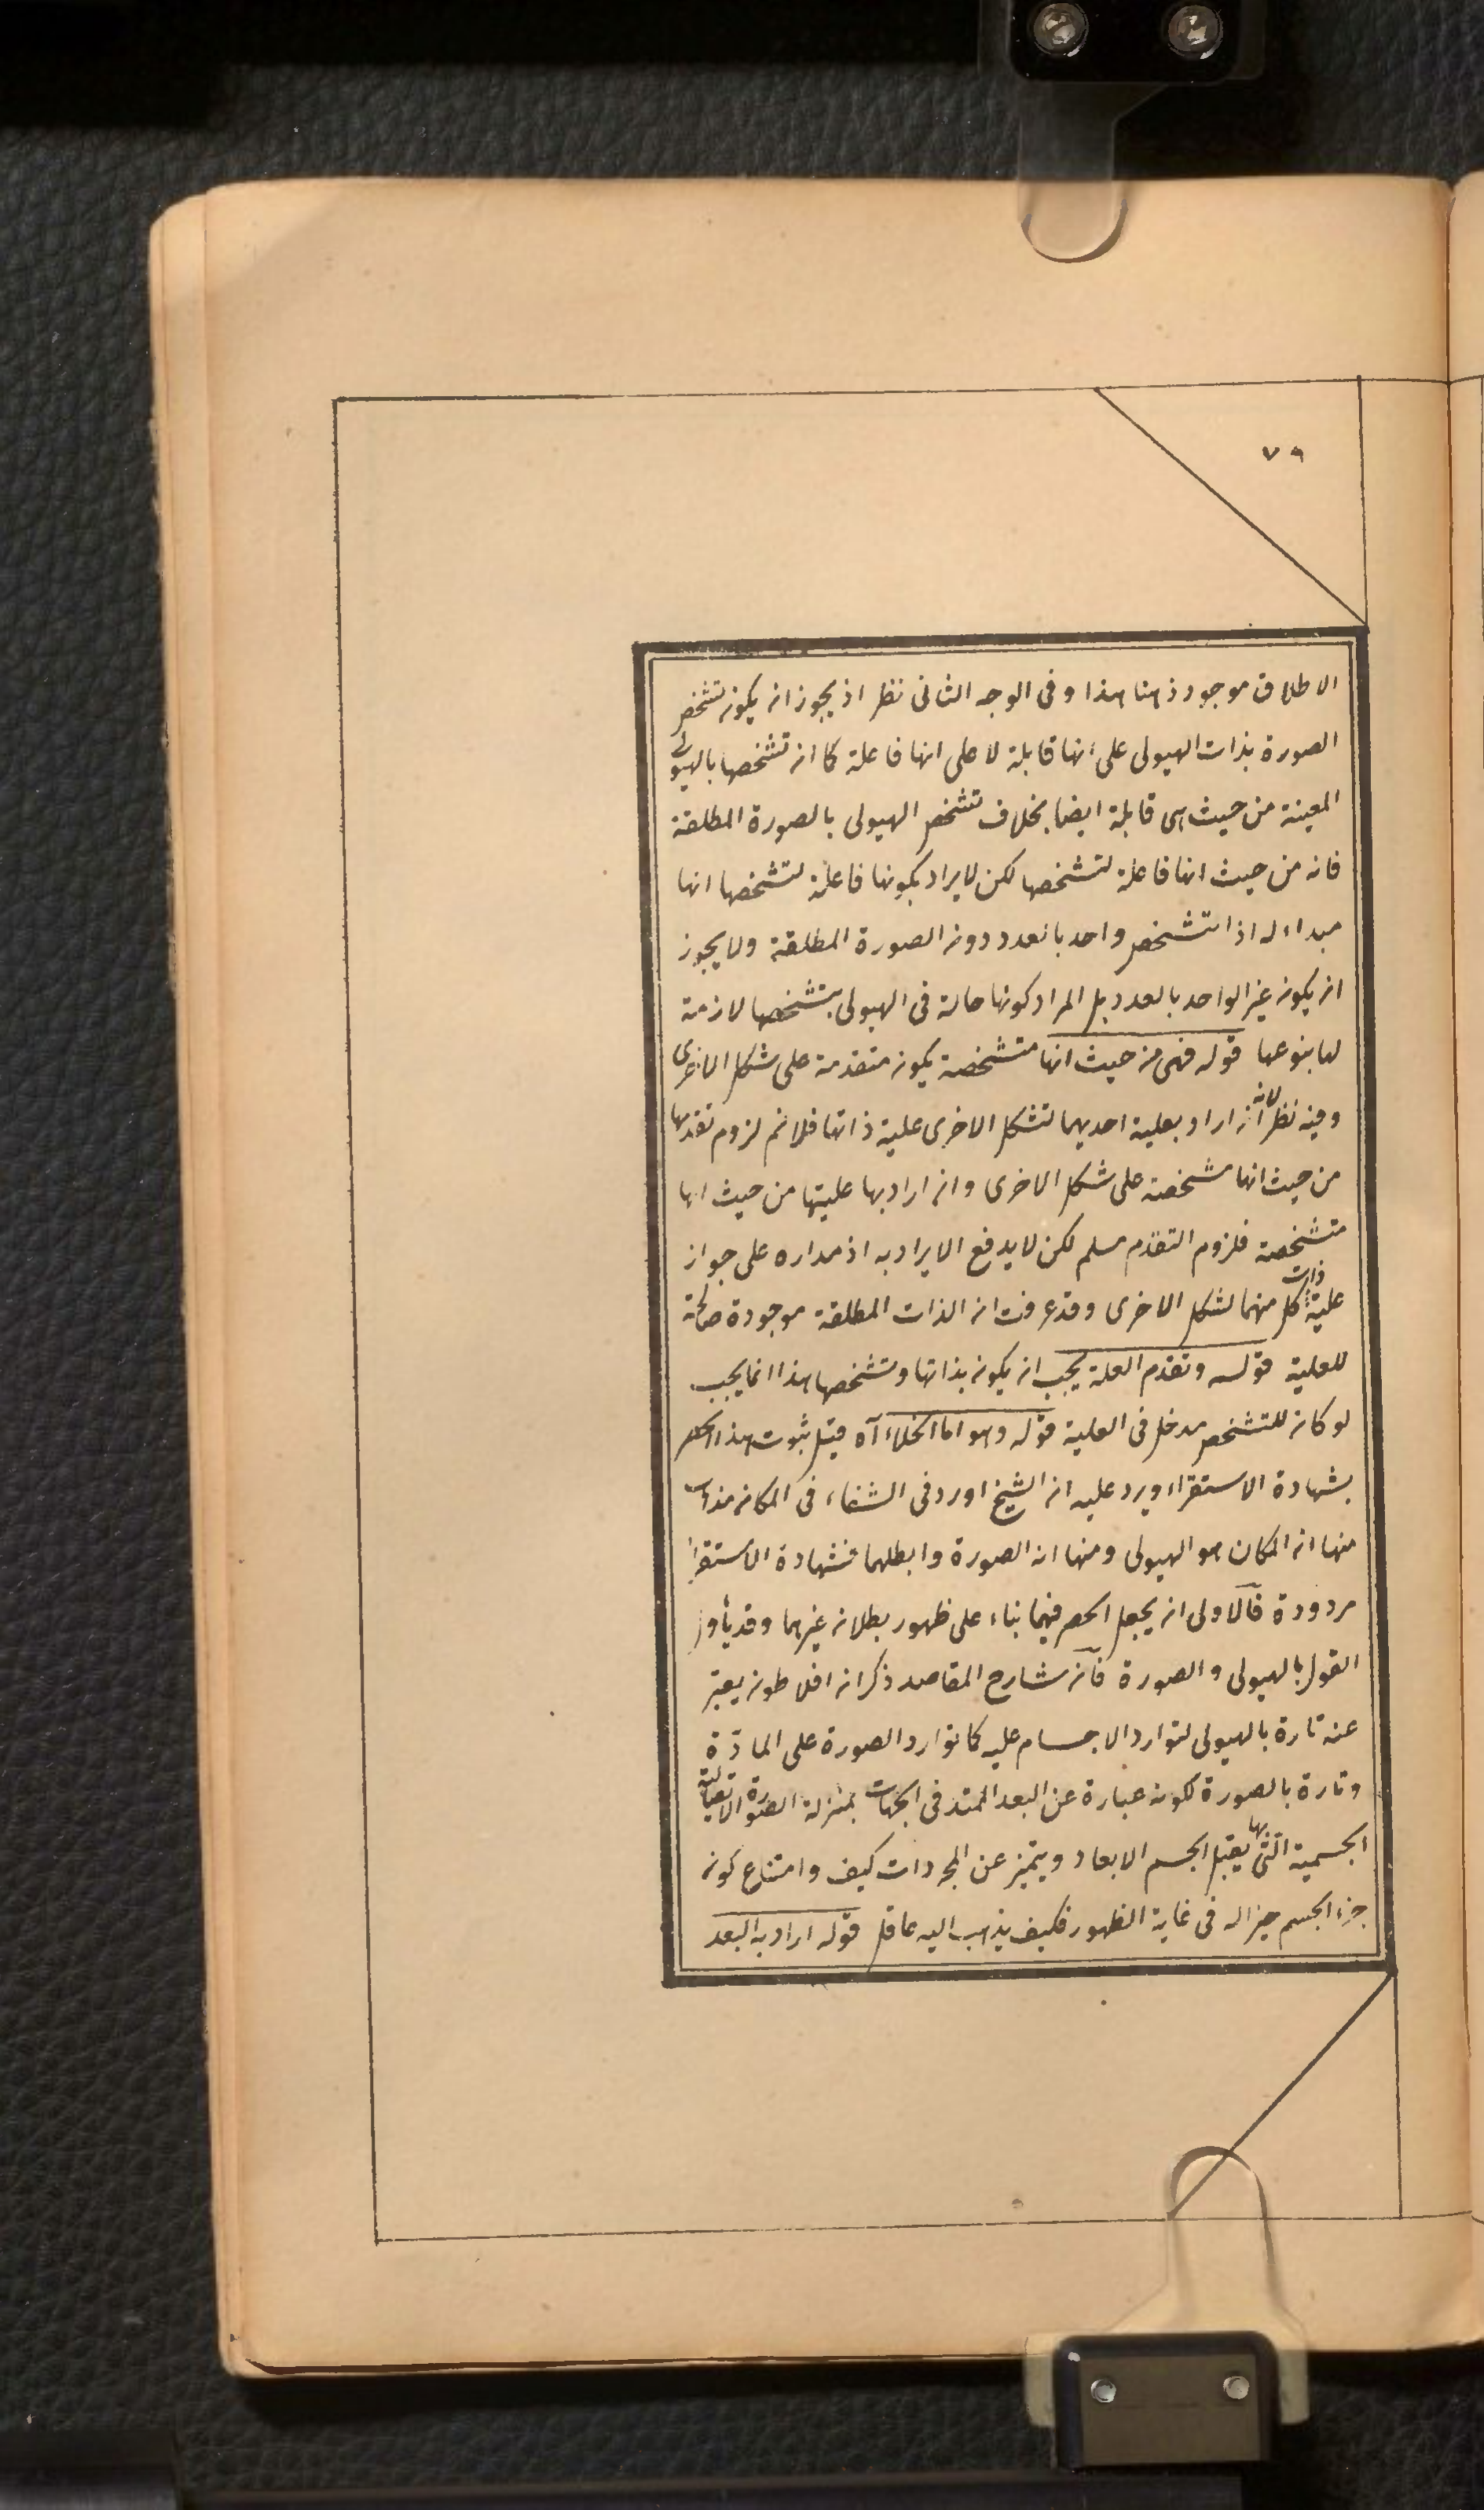 ٧٩
الاطلاق موجود ذهنا هذا وفى الوجه الثانى نظر اذ يجوز ان يكون تشخص
الصورة بذات الهيولى على انها قابلة لا على انها فاعلة كما ان تشخصها بالهيولى
المعينة من حيث هى قابلة ايضا بخلاف تشخص الهيولى بالصورة المطلقة
فانه من حيث انها فاعلة لتشخصها لكن لا يراد بكونها فاعلة لتشخصها انها
مبداء له اذ التشخص واحد بالعدد دون الصورة المطلقة ولا يجوز
ان يكون غير الواحد بالعدد بل المراد كونها حالة فى الهيولى بتشخصها لازمة
لها بنوعها قوله فهى من حيث انها متشخصة يكون متقدمة على شكل الاخرى
وفيه نظر لانه ان اراد بعلية احديهما لتشكل الاخرى علية ذاتها فلا نم لزوم تقدمها
من حيث انها مشخصة على شكل الاخرى وان اراد بها عليتها من حيث انها
متشخصة فلزوم التقدم مسلم لكن لا يدفع الايراد به اذ مداره على جواز
علية ذات كل منهما لشكل الاخرى وقد عرفت ان الذات المطلقة موجودة صالحة
للعلية قوله وتقدم العلة يجب ان يكون بذاتها وتشخصها هذا انما يجب
لو كان للتشخص مدخل فى العلية قوله وهو اما الخلاء آه قيل ثبوت هذا الحصر
بشهادة الاستقراء ويرد عليه ان الشيخ اورد فى الشفاء فى المكان مذاهب
منها ان المكان هو الهيولى ومنها انه الصورة وابطلهما فشهادة الاستقراء
مردودة فالاولى ان يجعل الحصر فيهما بناء على ظهور بطلان غيرهما وقد يأول
القول بالهيولى والصورة فان شارح المقاصد ذكر ان افلاطون يعبر
عنه تارة بالهيولى لتوارد الاجسام عليه كتوارد الصورة على المادة
وتارة بالصورة لكونه عبارة عن البعد الممتد فى الجهات بمنزلة الصورة الاتصالية
الجسمية التى بها يقبل الجسم الابعاد ويتميز عن المجردات كيف وامتناع كون
جزء الجسم حيزا له فى غاية الظهور فكيف يذهب اليه عاقل قوله اراد به البعد